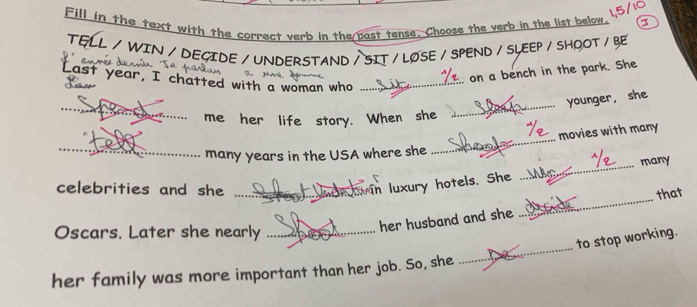 Fill in the text with the correct verb in the past tense. Choose the verb in the list below. 1,5/10
I
TELL / WIN / DECIDE / UNDERSTAND / SIT / LOSE / SPEND / SLEEP / SHOOT / BE
l'année dernière Je parlais a une femme
Last year, I chatted with a woman who sit 1/2 on a bench in the park. She
Spend me her life story. When she Sleep younger, she
tell many years in the USA where she Shoot 1/2 movies with many
celebrities and she in luxury hotels. She Win 1/2 many
Oscars. Later she nearly Shoot her husband and she decide that
her family was more important than her job. So, she be to stop working.